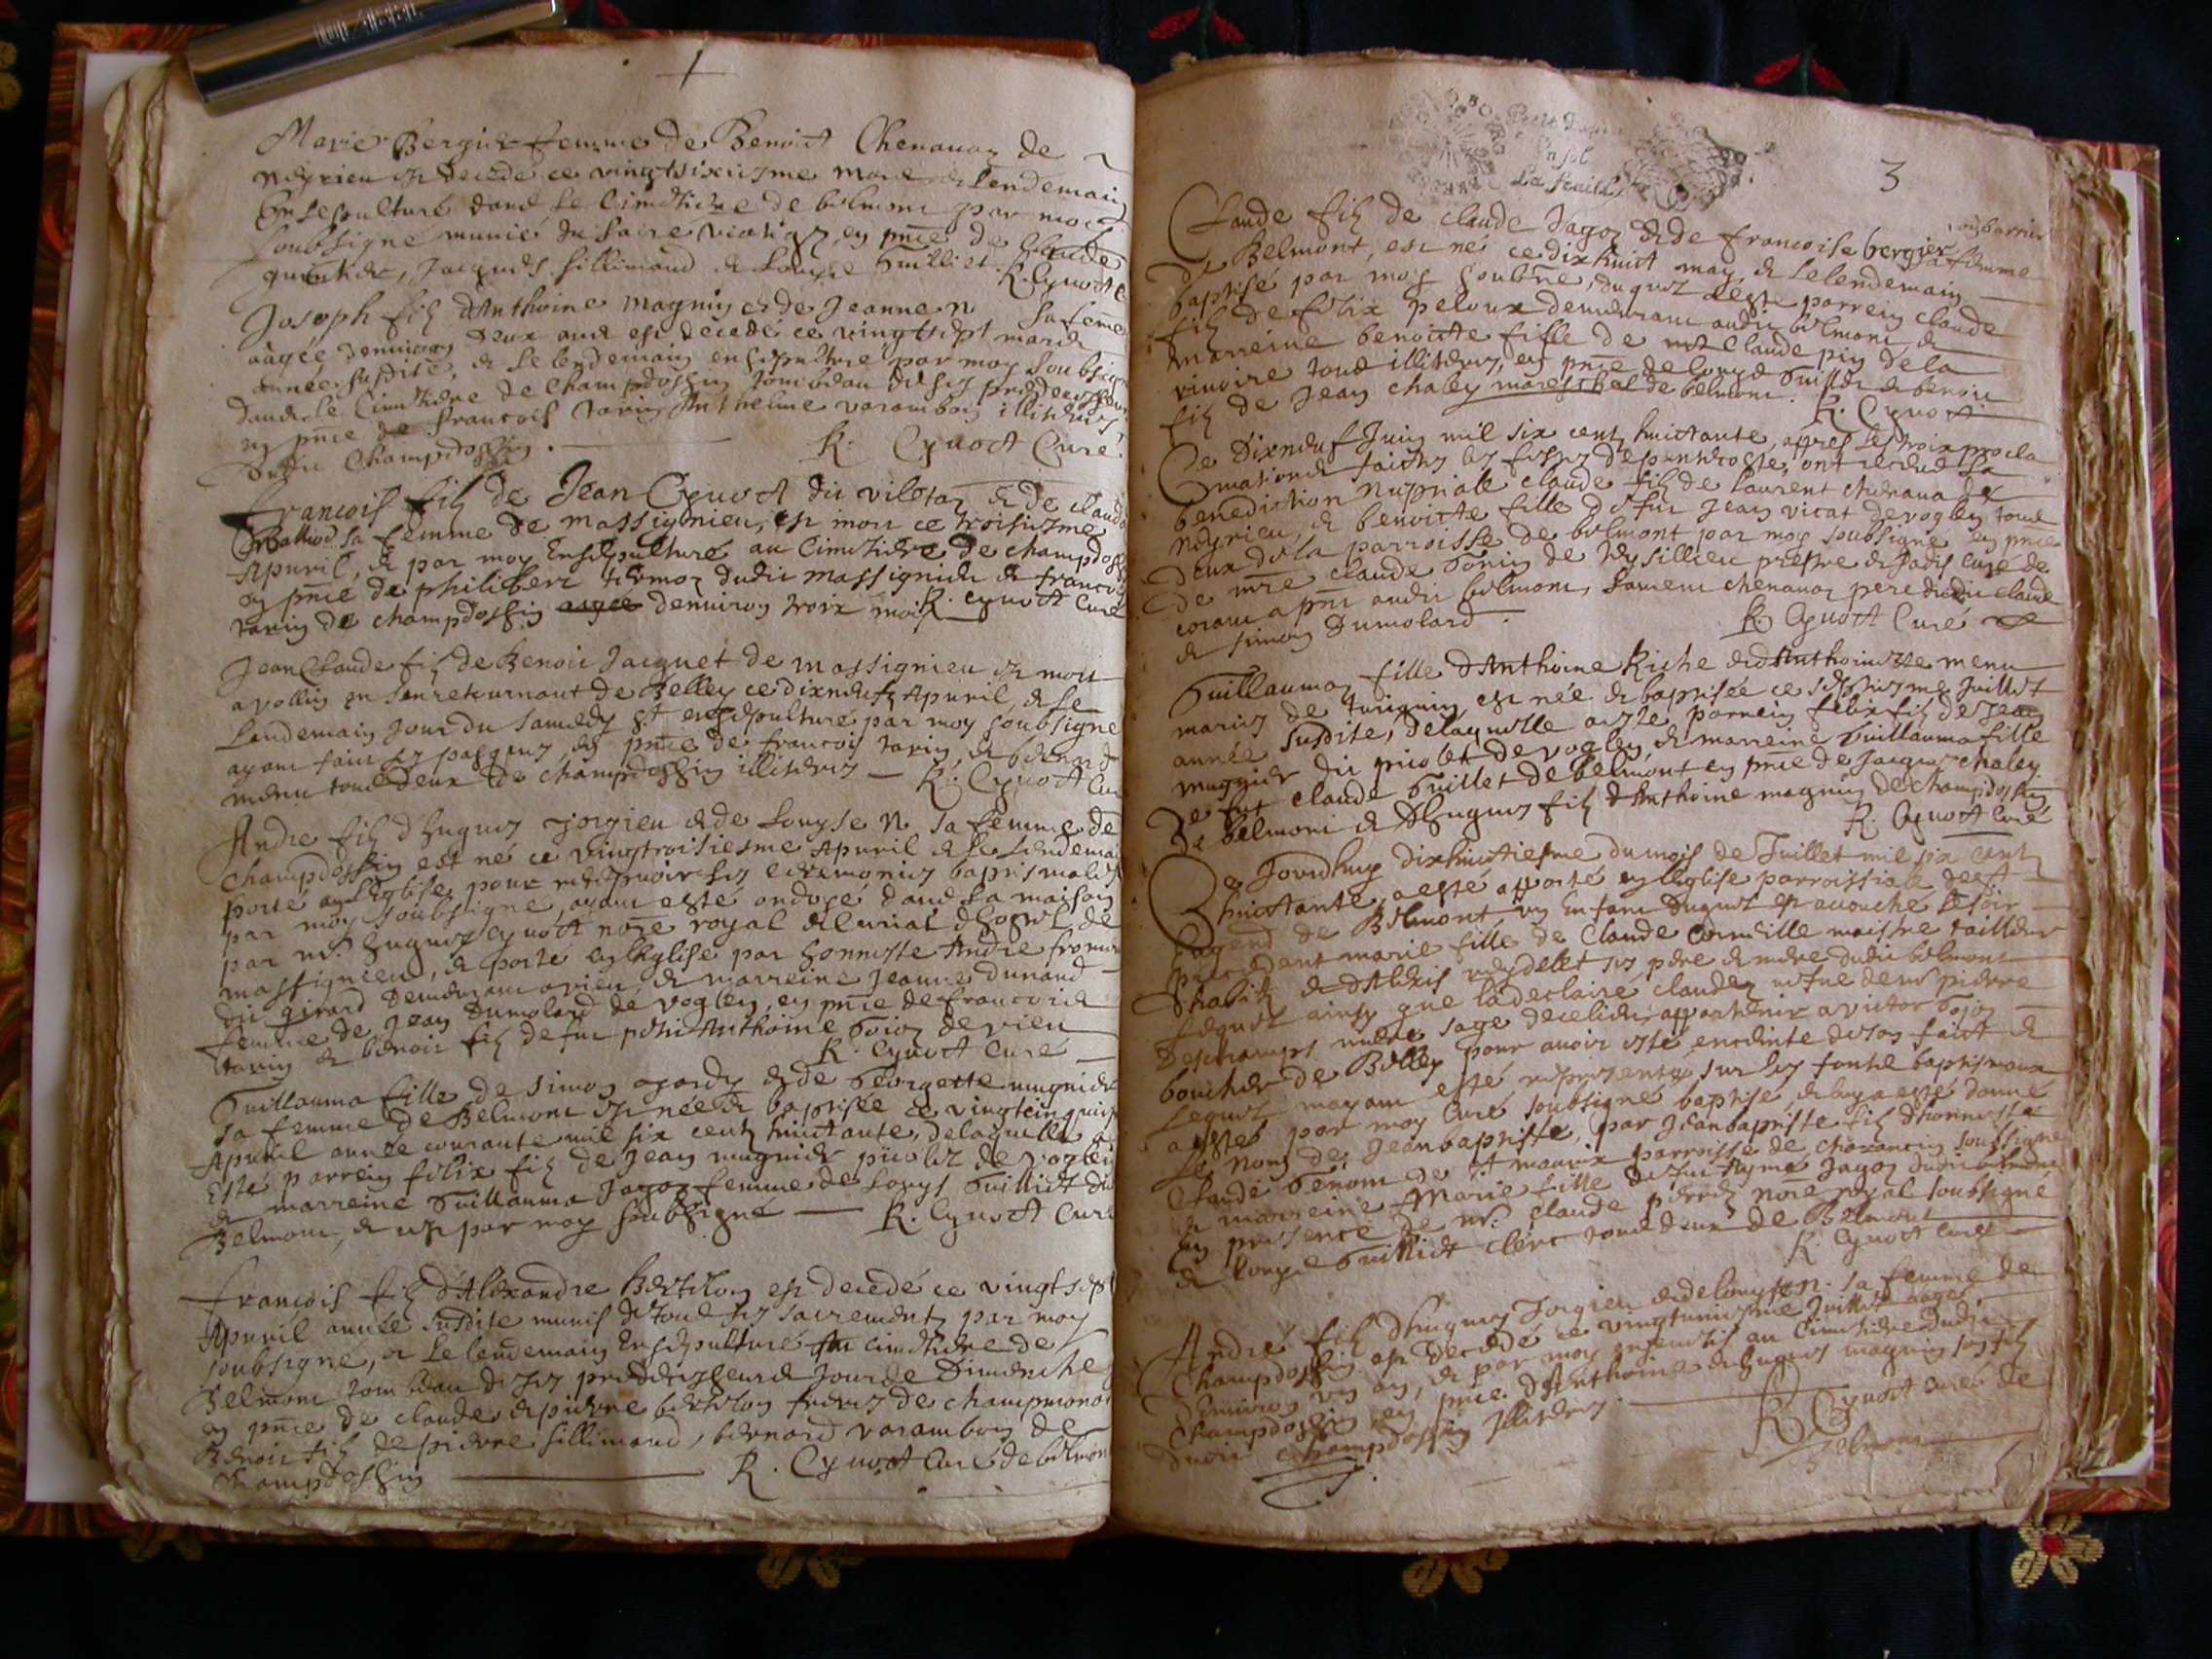 Marie Bergier femme de Benoict Chenauaz de
neyrieu est decede ce vingtsixiesme mars et le lendemain
Ensepulturé dans le Cimetiere de belmont par moy
soubsigné munie du sacre viatiqz, en pnce de Claude
Jacques fillimand et Louyse Guilliet. R. Cyvoct C
Joseph filz d'Anthoine magnin et de Jeanne N sa femme
aagée denuiron deux ans est decedé ce vingtsept mars
année susdite, et le lendemain ensepulturé par moy soubsigné
dans le Cimetiere de Champdossin tombeau de ses predecesseurs
en pnce de francois tarin Anthelme varambon illiteres
dudit Champdossin. R. Cyvoct Curé
francois filz de Jean Cyvoct dit viletaz et de claudaz
Balliod sa femme de massignieu, est mort ce troisiesme
Apuril, et par moy Ensepulturé au Cimetiere de champdossin
en pnce de philibert dudit massignieu et francois
tarin de champdossin denuiron trois mois R. Cyvoct Curé
Jean Claude filz de Benoit Jacquet de massignieu est mort
a vollin en s'en retournant de Belley ce dixneufz Apuril, et le
Lendemain Jour du samedy st ensepulturé par moy soubsigné
ayant fait ses pasques en pnce de francois tarin, et bernard
menu tous deux de champdossin illiteres — R. Cyvoct Curé
Andre filz d'hugues Jorgieu et de Louyse N sa femme de
champdossin est né ce vingttroisiesme Apuril et le lendemain
porté en L'Eglise pour receuoir les ceremonies baptismales
par moy soubsigné, ayant esté ondoyé dans la maison
par mr. hugues Cyvoct nore royal et curial d'hostel de
massignieu, et porté en l'Eglise par honneste Andre
dit girard demeurant a vieu, et marreine Jeanne dunand
femme de Jean Dumolard de voglen, en pnce de francois
tarin et benoit filz de fut petit Anthoine Goioz de vieu
R. Cyvoct Curé
Guillauma fille de simon et de Georgette mugnier
sa femme de Belmont est née et baptisée ce vingtcinquiesme
Apuril année courante mil six centz huictante, delaquelle a
Esté parrein felix filz de Jean mugnier picolet de voglen
et marreine Guillauma Jagoz femme de Louys Guilliet du
Belmont, et ce par moy soubsigné — R. Cyvoct Curé
francois filz d'Alexandre Berthlon est decedé ce vingtsept
Apuril année susdite munis de tous ses sacrementz par moy
soubsigné, et le lendemain Ensepulturé au cimetiere de
Belmont tombeau de ses predecesseurs Jour de Dimenche
en pnce de claude et pierre berthlon freres de champmono
Benoit filz de pierre fillimand, bernard varambon de
champdossin — R. Cyvoct Curé de belmont
3
Claude filz de claude Jagoz et de francoise bergier sa femme
de Belmont, est né ce dixhuict may, et le lendemain
baptisé par moy soubné, duquel a esté parrein claude
filz de felix peloux demeurant audit belmont, et
marreine benoicte fille de mre Claude pin de la
riuoire tous illiteres, en pnce de Louys Guillet et benoit
filz de Jean chaley mareschal de belmont. R. Cyvoct
Ce Dixneuf Juin mil six centz huictante, appres les trois procla
mations faictes les festes de pentecoste, ont receus la
benediction Nuptiale claude filz de laurent chenaua de
Neyrieu, et benoicte fille de fut Jean vicat de voglen tous
Deux de la parroisse de belmont par moy soubsigné en pnce
De mre claude Gonin de Ceysillieu prestre et Jadis curé de
audit belmont, Laurent chenauaz pere dudit claude
et simon Dumolard. R. Cyvoct Curé
Guillaumaz fille d'Anthoine Riche et d'Anthoinette menu
maries de turignin, est née et baptisée ce septiesme Juillet
année susdite, delaquelle a esté parrein felix filz de Jean
mugnier dit picolet de voglen, et marreine Guillauma fille
De fut claude Guillet de belmont en pnce de Jacques chaley
de belmont et d'hugues filz d'Anthoine magnin de champdossin
R. Cyvoct Curé
Ce Jourdhuy dixhuictiesme du mois de Juillet mil six centz
huictante, a esté apporté en l'Eglise parroissiale de st
Lagend de Belmont, un Enfant duquel est accouché le soir
precedent marie fille de Claude Corneille maistre tailleur
D'habitz et d'Alexis reydellet ses pere et mere dudit belmont
Lequel ainsy que la declaire claudaz vefue de mr pierre
Deschamps mere sage decelieu, appartenir a victor Gojoz
boucher de Belley pour auoir esté enceinte de son faict et
Lequel mayant esté representez sur les fontz baptismaux
a esté par moy Curé soubsigné baptisé, et luy a esté donné
Le Nom de Jeanbaptiste, par Jeanbaptiste filz d'honneste
Claude Genom de st maurix parroisse de Chazancin soubsigné
et marreine Marie fille de fut Aymé Jagoz dudit belmont
en presence de mr. claude perrez nore royal soubsigné
et Louys Guilliet clerc tous deux de Belmont
R. Cyvoct Curé
André filz d'hugues Jorgieu et de Louyse n. sa femme de
Champdossin est Decedé ce vingtuniesme Juillet aagé
Denuiron un an, et par moy enseuelis au Cimetiere dudit
Champdossin en pnce d'Anthoine et hugues magnin son filz
dudit champdossin Illiteres.
R. Cyvoct Curé de
Belmont